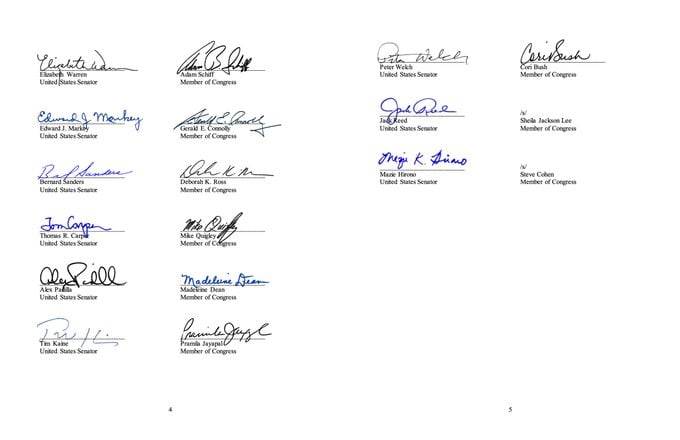 Elizabeth Warren
Elizabeth Warren
United States Senator
Adam B. Schiff
Adam Schiff
Member of Congress
Edward J. Markey
Edward J. Markey
United States Senator
Gerald E. Connolly
Gerald E. Connolly
Member of Congress
Bernard Sanders
United States Senator
Deborah K. Ross
Member of Congress
Tom Carper
Thomas R. Carper
United States Senator
Mike Quigley
Mike Quigley
Member of Congress
Alex Padilla
Alex Padilla
United States Senator
Madeleine Dean
Madeleine Dean
Member of Congress
Tim Kaine
United States Senator
Pramila Jayapal
Pramila Jayapal
Member of Congress
4
Peter Welch
Peter Welch
United States Senator
Cori Bush
Cori Bush
Member of Congress
Jack Reed
Jack Reed
United States Senator
/s/
Sheila Jackson Lee
Member of Congress
Mazie K. Hirono
Mazie Hirono
United States Senator
/s/
Steve Cohen
Member of Congress
5